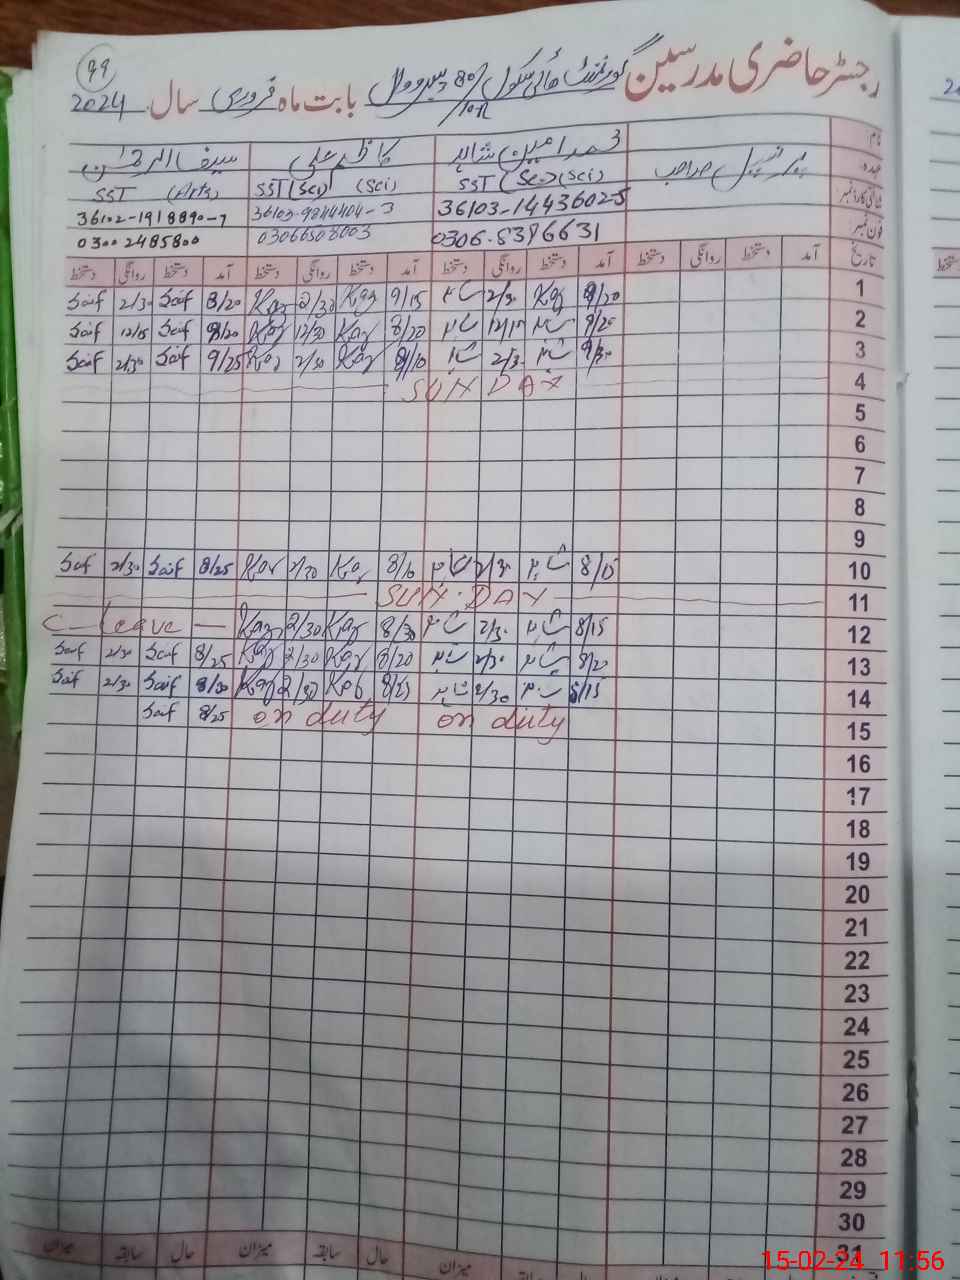 99
رجسٹر حاضری مدرسین گورنمنٹ ہائی سکول 80/10-R پیرووال بابت ماہ فروری سال 2024
نام محمد امین شاہد کاظم علی سیف الرحمٰن
عہدہ پرنسپل صاحب SST (Sci) SST (Sci) (Sci) SST (Arts)
شناختی کارڈ نمبر 36103-1443602-5 36103-9844404-3 36102-1918890-7
فون نمبر 0306-8386631 03066508003 03002485800
تاریخ آمد دستخط روانگی دستخط آمد دستخط روانگی دستخط آمد دستخط روانگی دستخط آمد دستخط روانگی دستخط
1 8/20 Kaz 2/30 9/15 Kaz 2/30 Kaz 8/20 Saif 2/30 Saif
2 8/20 Kaz 12/30 Kaz 8/20 Saif 12/15 Saif
3 2/30 8/10 Kaz 2/30 Kaz 9/25 Saif 2/30 Saif
4 SUNDAY
5
6
7
8
9
10 8/15 2/30 Kaz 2/30 Kaz 8/25 Saif 2/30 Saif
11 SUNDAY
12 8/15 2/30 8/30 Kaz 2/30 Kaz C-leave
13 8/20 2/30 8/20 Kaz 2/30 Kaz 8/25 Saif 2/30 Saif
14 8/15 2/30 2/30 Kaz 8/30 Saif 2/30 Saif
15 on duty on duty 8/25 Saif
16
17
18
19
20
21
22
23
24
25
26
27
28
29
30
31
حال سابقہ میزان حال سابقہ میزان
15-02-24 11:56